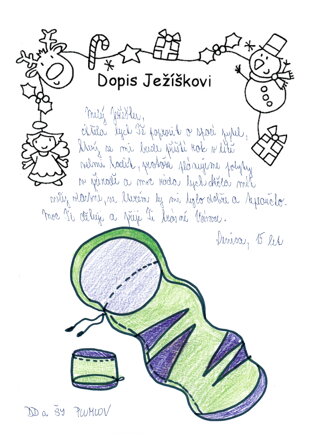 Dopis Ježíškovi
Milý Ježíšku,
chtěla bych Tě poprosit o spací pytel,
který se mi bude příští rok v létě
velmi hodit, protože plánujeme pobyty
v přírodě a moc ráda bych chtěla mít
můj vlastní, ve kterém by mi bylo dobře a
Moc Ti děkuji a přeji Ti krásné Vánoce.
Denisa, 15 let
DD a ŠJ PLUMLOV